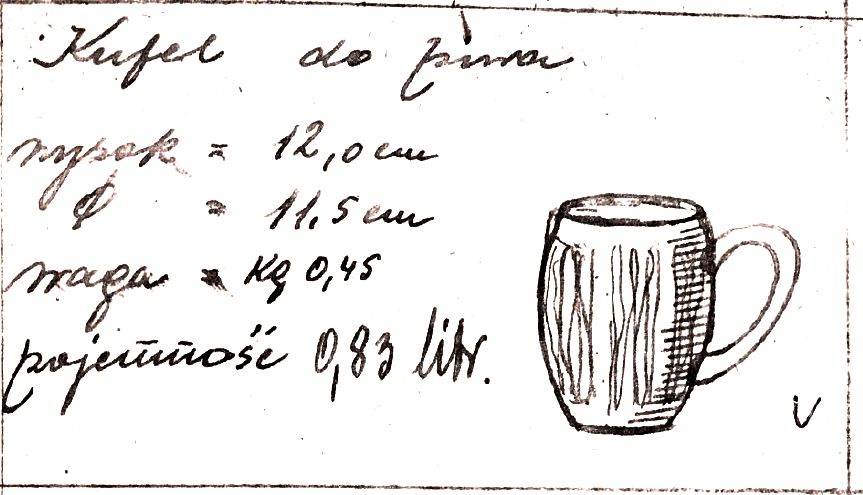 Kufel do piwa
wysok = 12,0 cm
φ = 11,5 cm
waga = Kg 0,45
pojemność 0,83 litr.
V